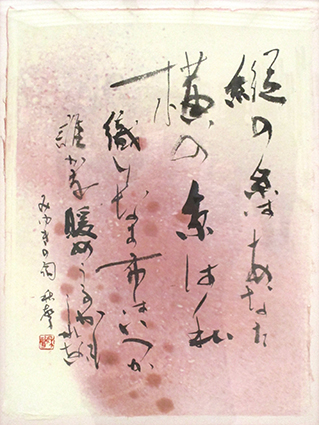 縦の糸はあなた
横の糸は私
織りなす布はいつか
誰かを暖めうるかもしれない
みゆきの詞